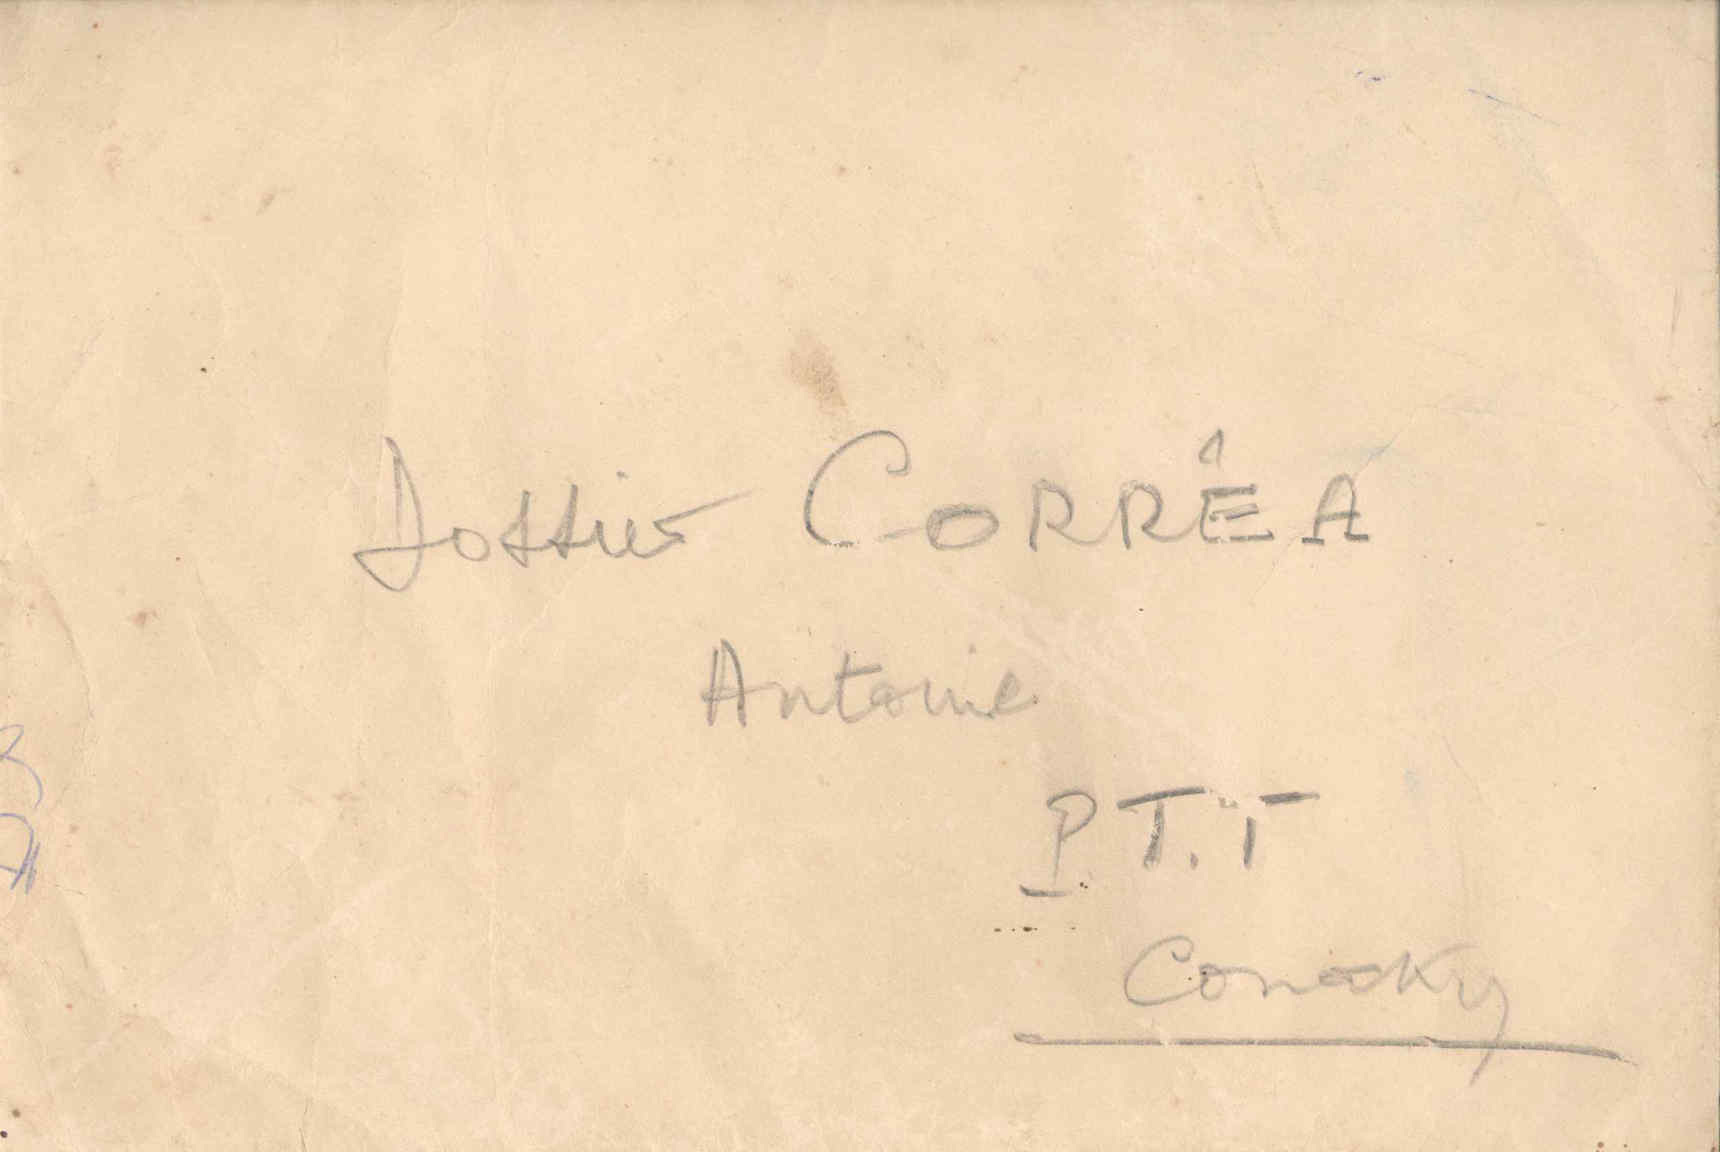 Dossier CORRÊA
Antoine
P.T.T
Conakry